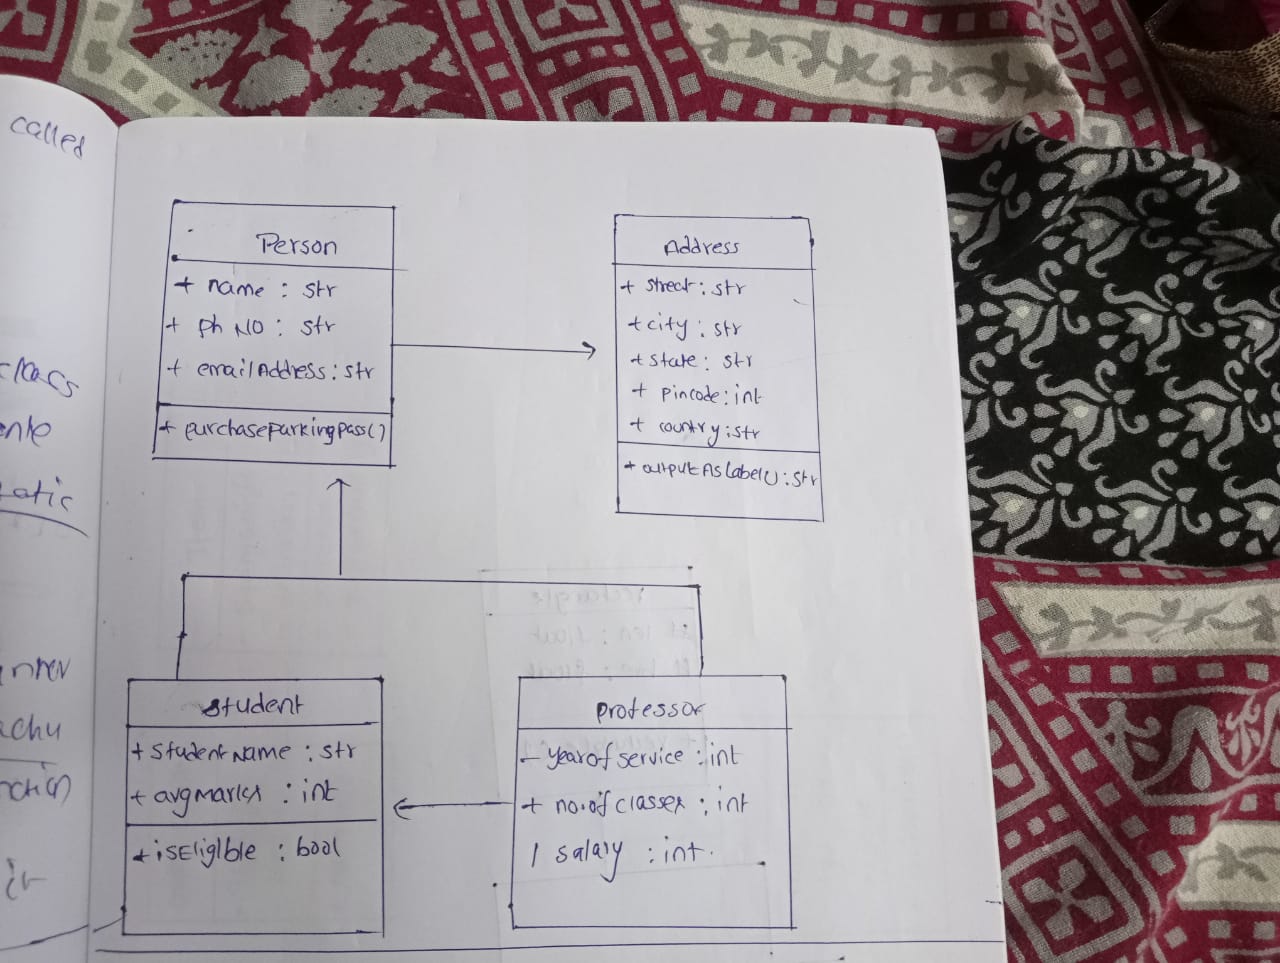 called
class
static
Person
+ name : str
+ ph NO : str
+ emailAddress : str
+ purchaseparkingpass()
Address
+ street : str
+ city : str
+ state : str
+ pincode : int
+ country : str
+ outputAsLabel() : str
student
+ studentName : str
+ avgmarks : int
+ isEligible : bool
professor
- yearofservice : int
+ no.of classes : int
/ salary : int.